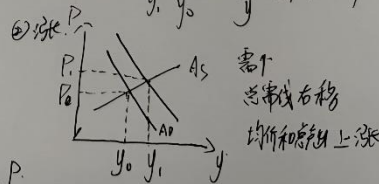 y₁ y₀ y
②涨. P
P₁
P₀
AS
AD
y₀ y₁ y
需个
总需线右移
均价和总产出上涨
P.